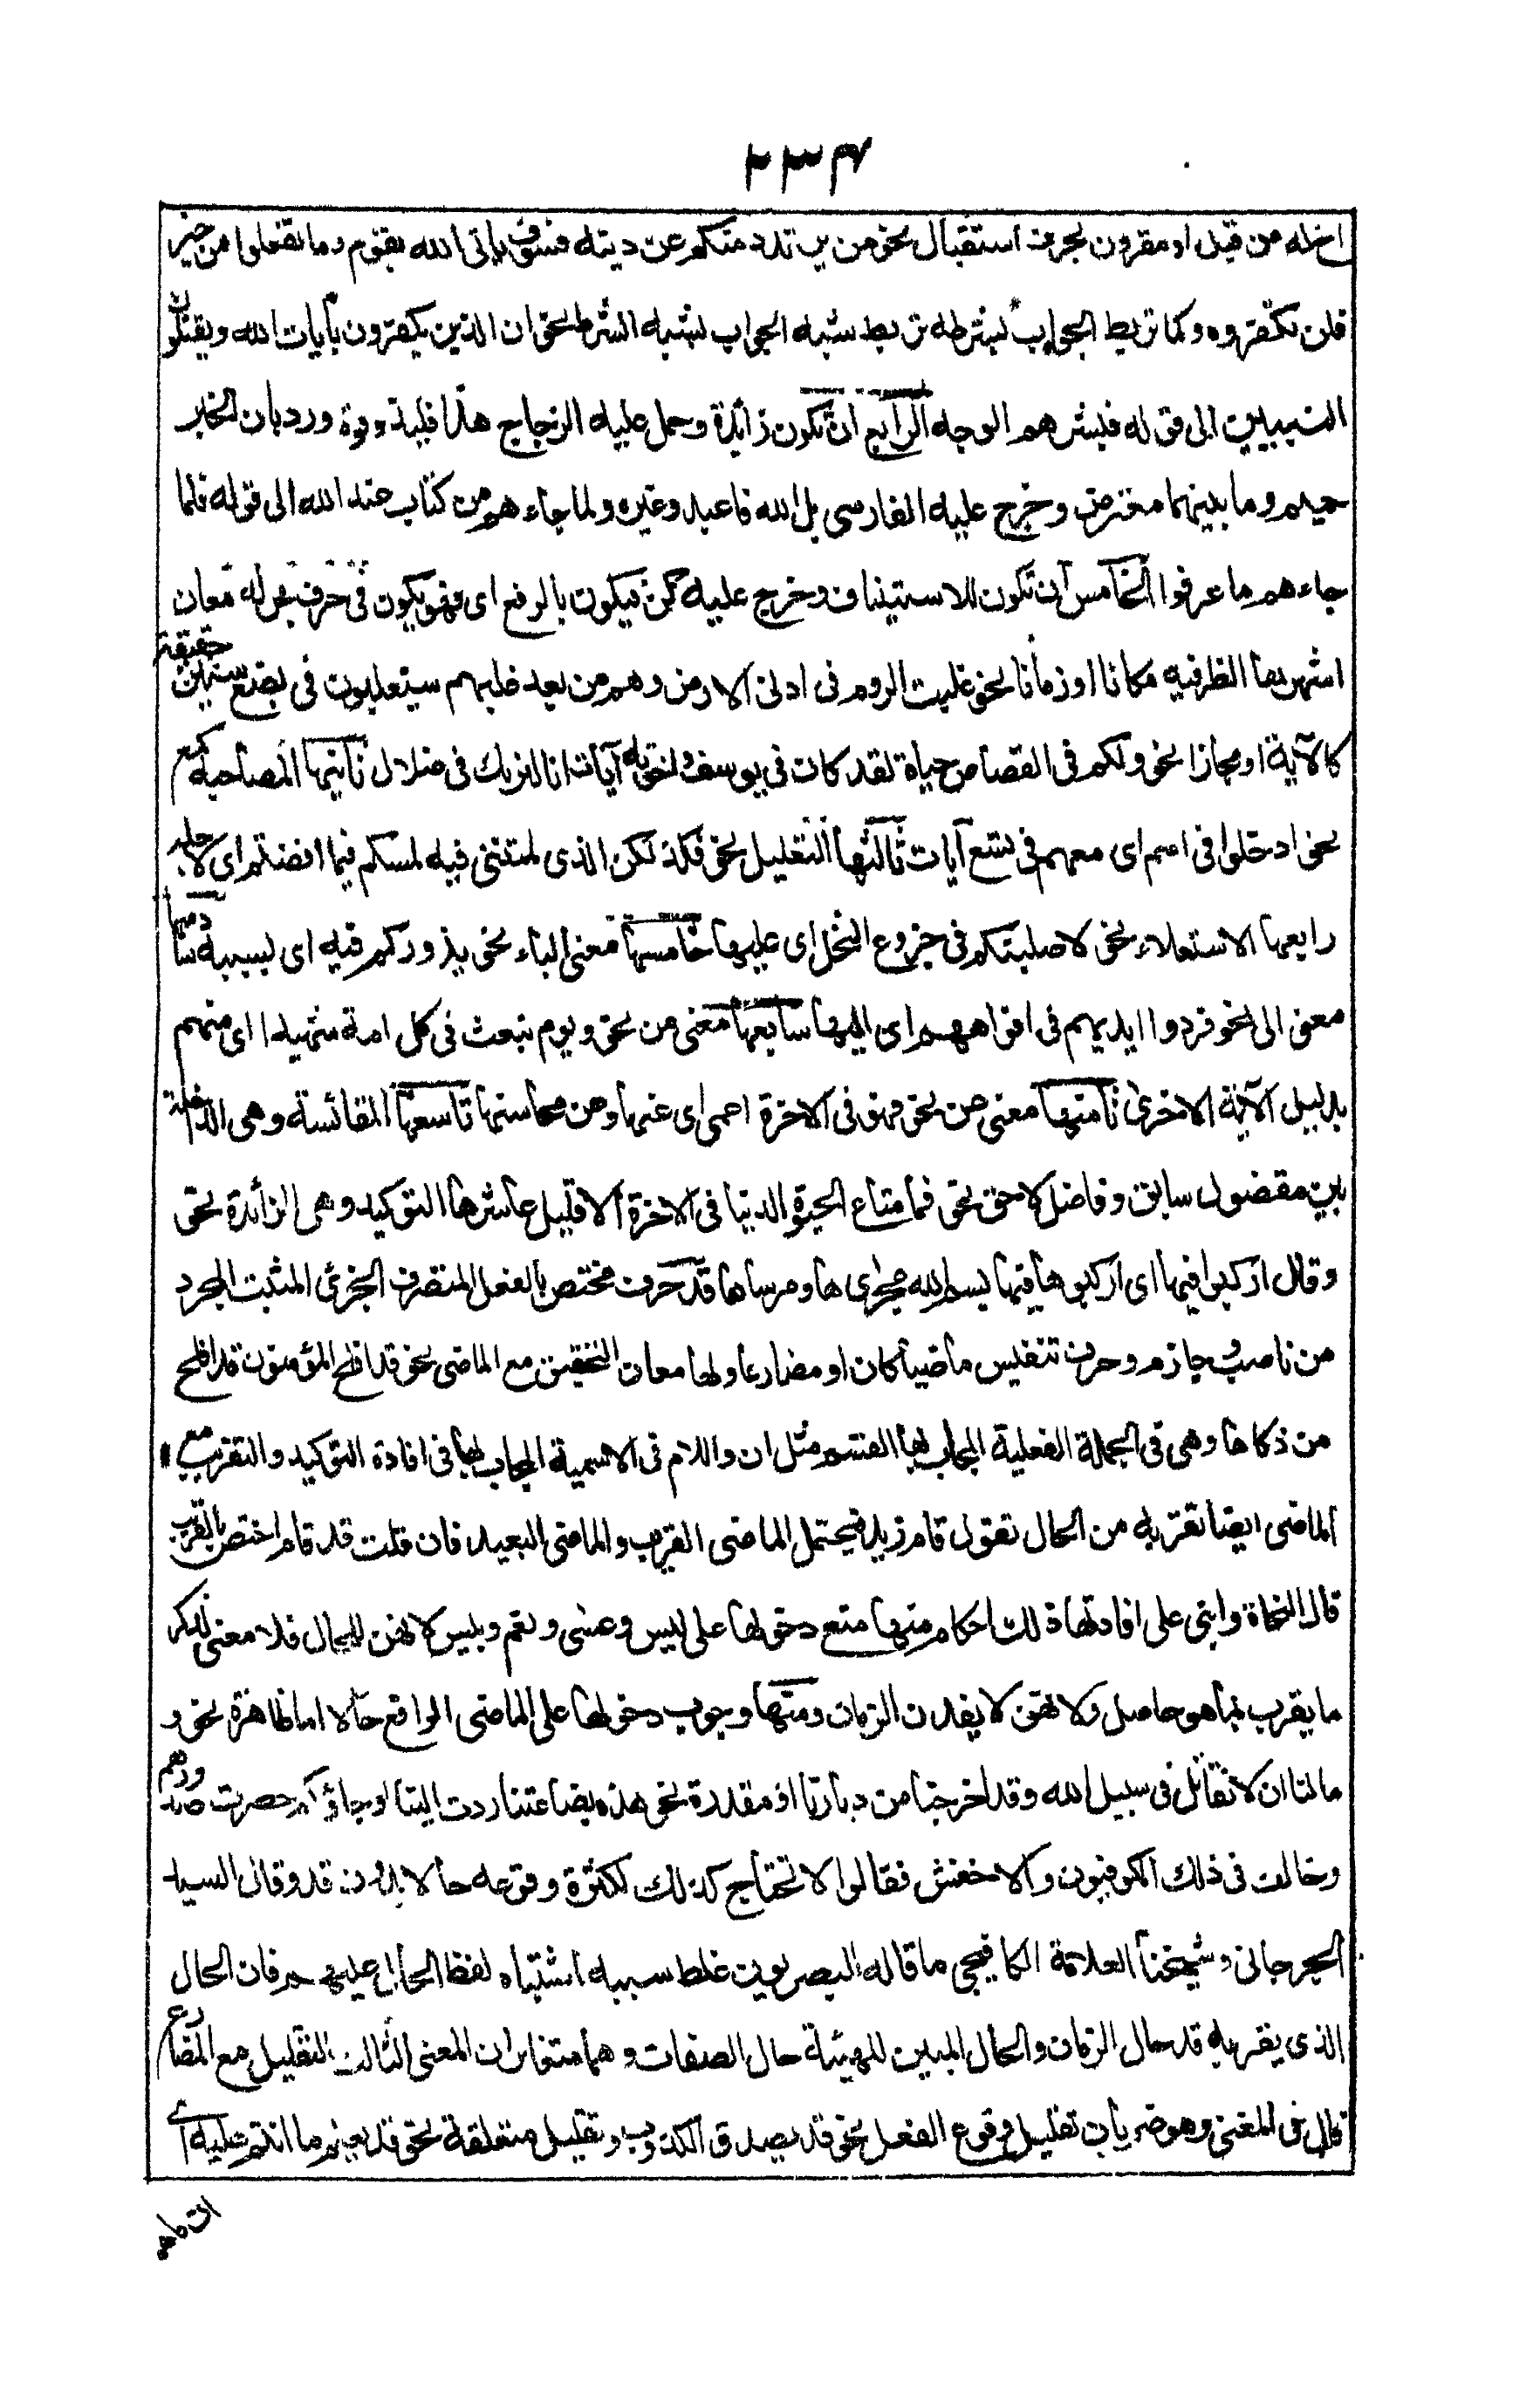 ٢٣٤
اخ له من قبل او مقرون بحرف استقبال نحو من يرتدد منكم عن دينه فسوف ياتى الله بقوم وما تفعلوا من خير
فلن تكفروه وكما تربط الجواب بشرطه تربط شبه الجواب بشبه الشرط نحو ان الذين يكفرون بأيات الله ويقتلون
النبيين الى قوله فبشرهم الوجه الرابع ان تكون زائدة وحمل عليه الزجاج هذا فليذوقوه ورد بان الخبر
حميم وما بينهما معترض وخرج عليه الفارسى بل الله فاعبد وغيره ولما جاءهم من كتاب عند الله الى قوله فلما
جاءهم ما عرفوا الخامس ان تكون للاستيناف وخرج عليه كن فيكون بالرفع اى فهو يكون فى حرف جر له معان
اشهرها الظرفية مكانا او زمانا نحو غلبت الروم فى ادنى الارض وهم من بعد غلبهم سيغلبون فى بضع سنين حقيقة
كالآية او مجازا نحو ولكم فى القصاص حياة لقد كان فى يوسف واخوته آيات انا لنريك فى ضلال ثانيها المصاحبة كمع
نحو ادخلوا فى امم اى معهم فى تسع آيات ثالثها التعليل نحو فذلكن الذى لمتننى فيه لمسكم فيما افضتم اى لاجله
رابعها الاستعلاء نحو لاصلبنكم فى جزوع النخل اى عليها خامسها معنى الباء نحو يذرؤكم فيه اى بسببه سادسها
معنى الى نحو فردوا ايديهم فى افواههم اى اليها سابعها معنى من نحو ويوم نبعث فى كل امة شهيدا اى منهم
بدليل الآية الاخرى ثامنها معنى عن نحو فهو فى الاخرة اعمى اى عنها وعن محاسنها تاسعها المقائسة وهى الداخلة
بين مفضول سابق وفاضل لاحق نحو فما متاع الحيوة الدنيا فى الاخرة الا قليل عاشرها التوكيد وهى الزائدة نحو
وقال اركبوا فيها اى اركبوها فيها بسم الله مجرىها ومرساها قد حرف مختص بالفعل المتصرف الخبرى المثبت المجرد
من ناصب وجازم وحرف تنفيس ماضيا كان او مضارعا ولها معان التحقيق مع الماضى نحو قد افلح المؤمنون قد افلح
من زكاها وهى فى الجملة الفعلية المجاب بها القسم مثل ان واللام فى الاسمية المجاب بها فى افادة التوكيد والتقريب مع
الماضى ايضا تقربه من الحال تقول قام زيد فيحتمل الماضى القريب والماضى البعيد فان قلت قد قام اختص بالقريب
قال النحاة وابنى على افادتها ذلك احكام منها منع دخولها على ليس وعسى ونعم وبئس لانهن للحال فلا معنى لذكر
ما يقرب بما هو حاصل ولانهن لا يفدن الزمان ومنها وجوب دخولها على الماضى الواقع حالا اما ظاهرة نحو و
مالنا ان لا نقاتل فى سبيل الله وقد اخرجنا من ديارنا او مقدرة نحو هذه بضاعتنا ردت الينا او جاؤكم حصرت صدورهم
وخالف فى ذلك الكوفيون والاخفش فقالوا لا تحتاج كذلك لكثرة وقوعه حالا بدون قد وقال السيد
الجرجانى وشيخنا العلامة الكافيجى ما قاله البصريون غلط سببه اشتباه لفظ الحال عليهم فان الحال
الذى يقربه قد حال الزمان والحال المبين للهيئة حال الصفات وهما متغايران المعنى الثالث التقليل مع المضارع
قال فى المغنى وهو ضربان تقليل وقوع الفعل نحو قد يصدق الكذوب وتقليل متعلقة نحو قد يعلم ما انتم عليه اى